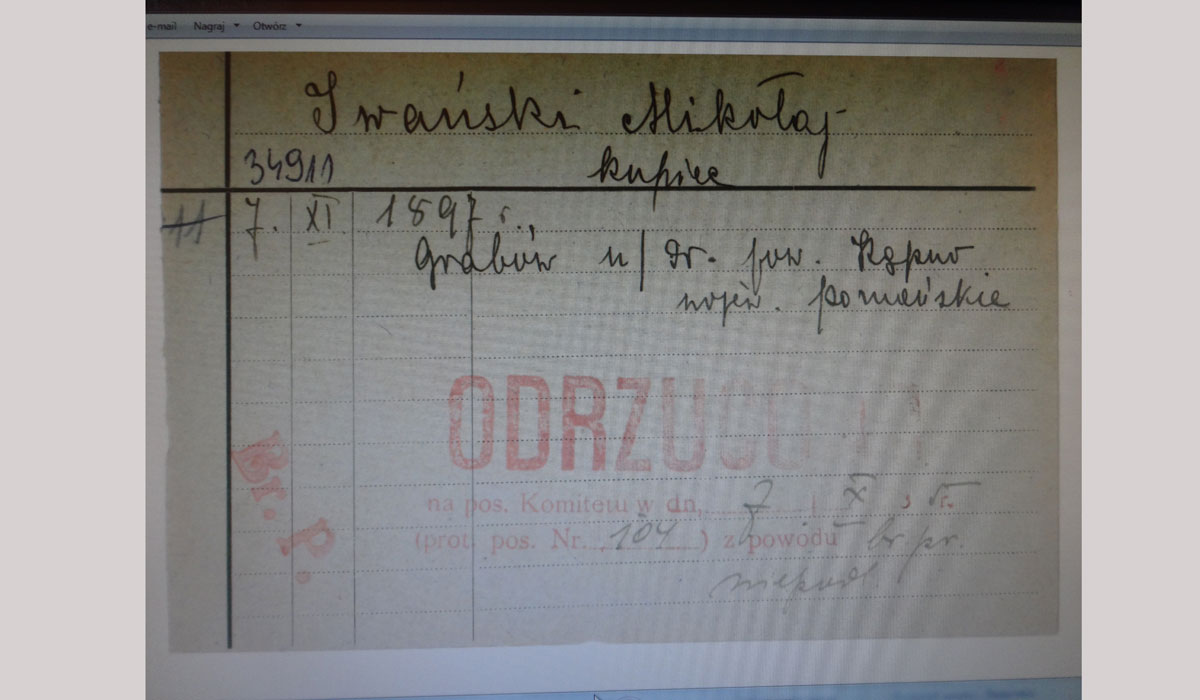 e-mail Nagraj Otwórz
Iwański Mikołaj
34911 kupiec
11 7. XI 1897 r.,
Grabów n/ Pr. pow. Kępno
wojew. poznańskie
ODRZUCO
Br. P.
na pos. Komitetu w dn, 7 X
(prot. pos. Nr. 104 ) z powodu br. pr.
niepodl